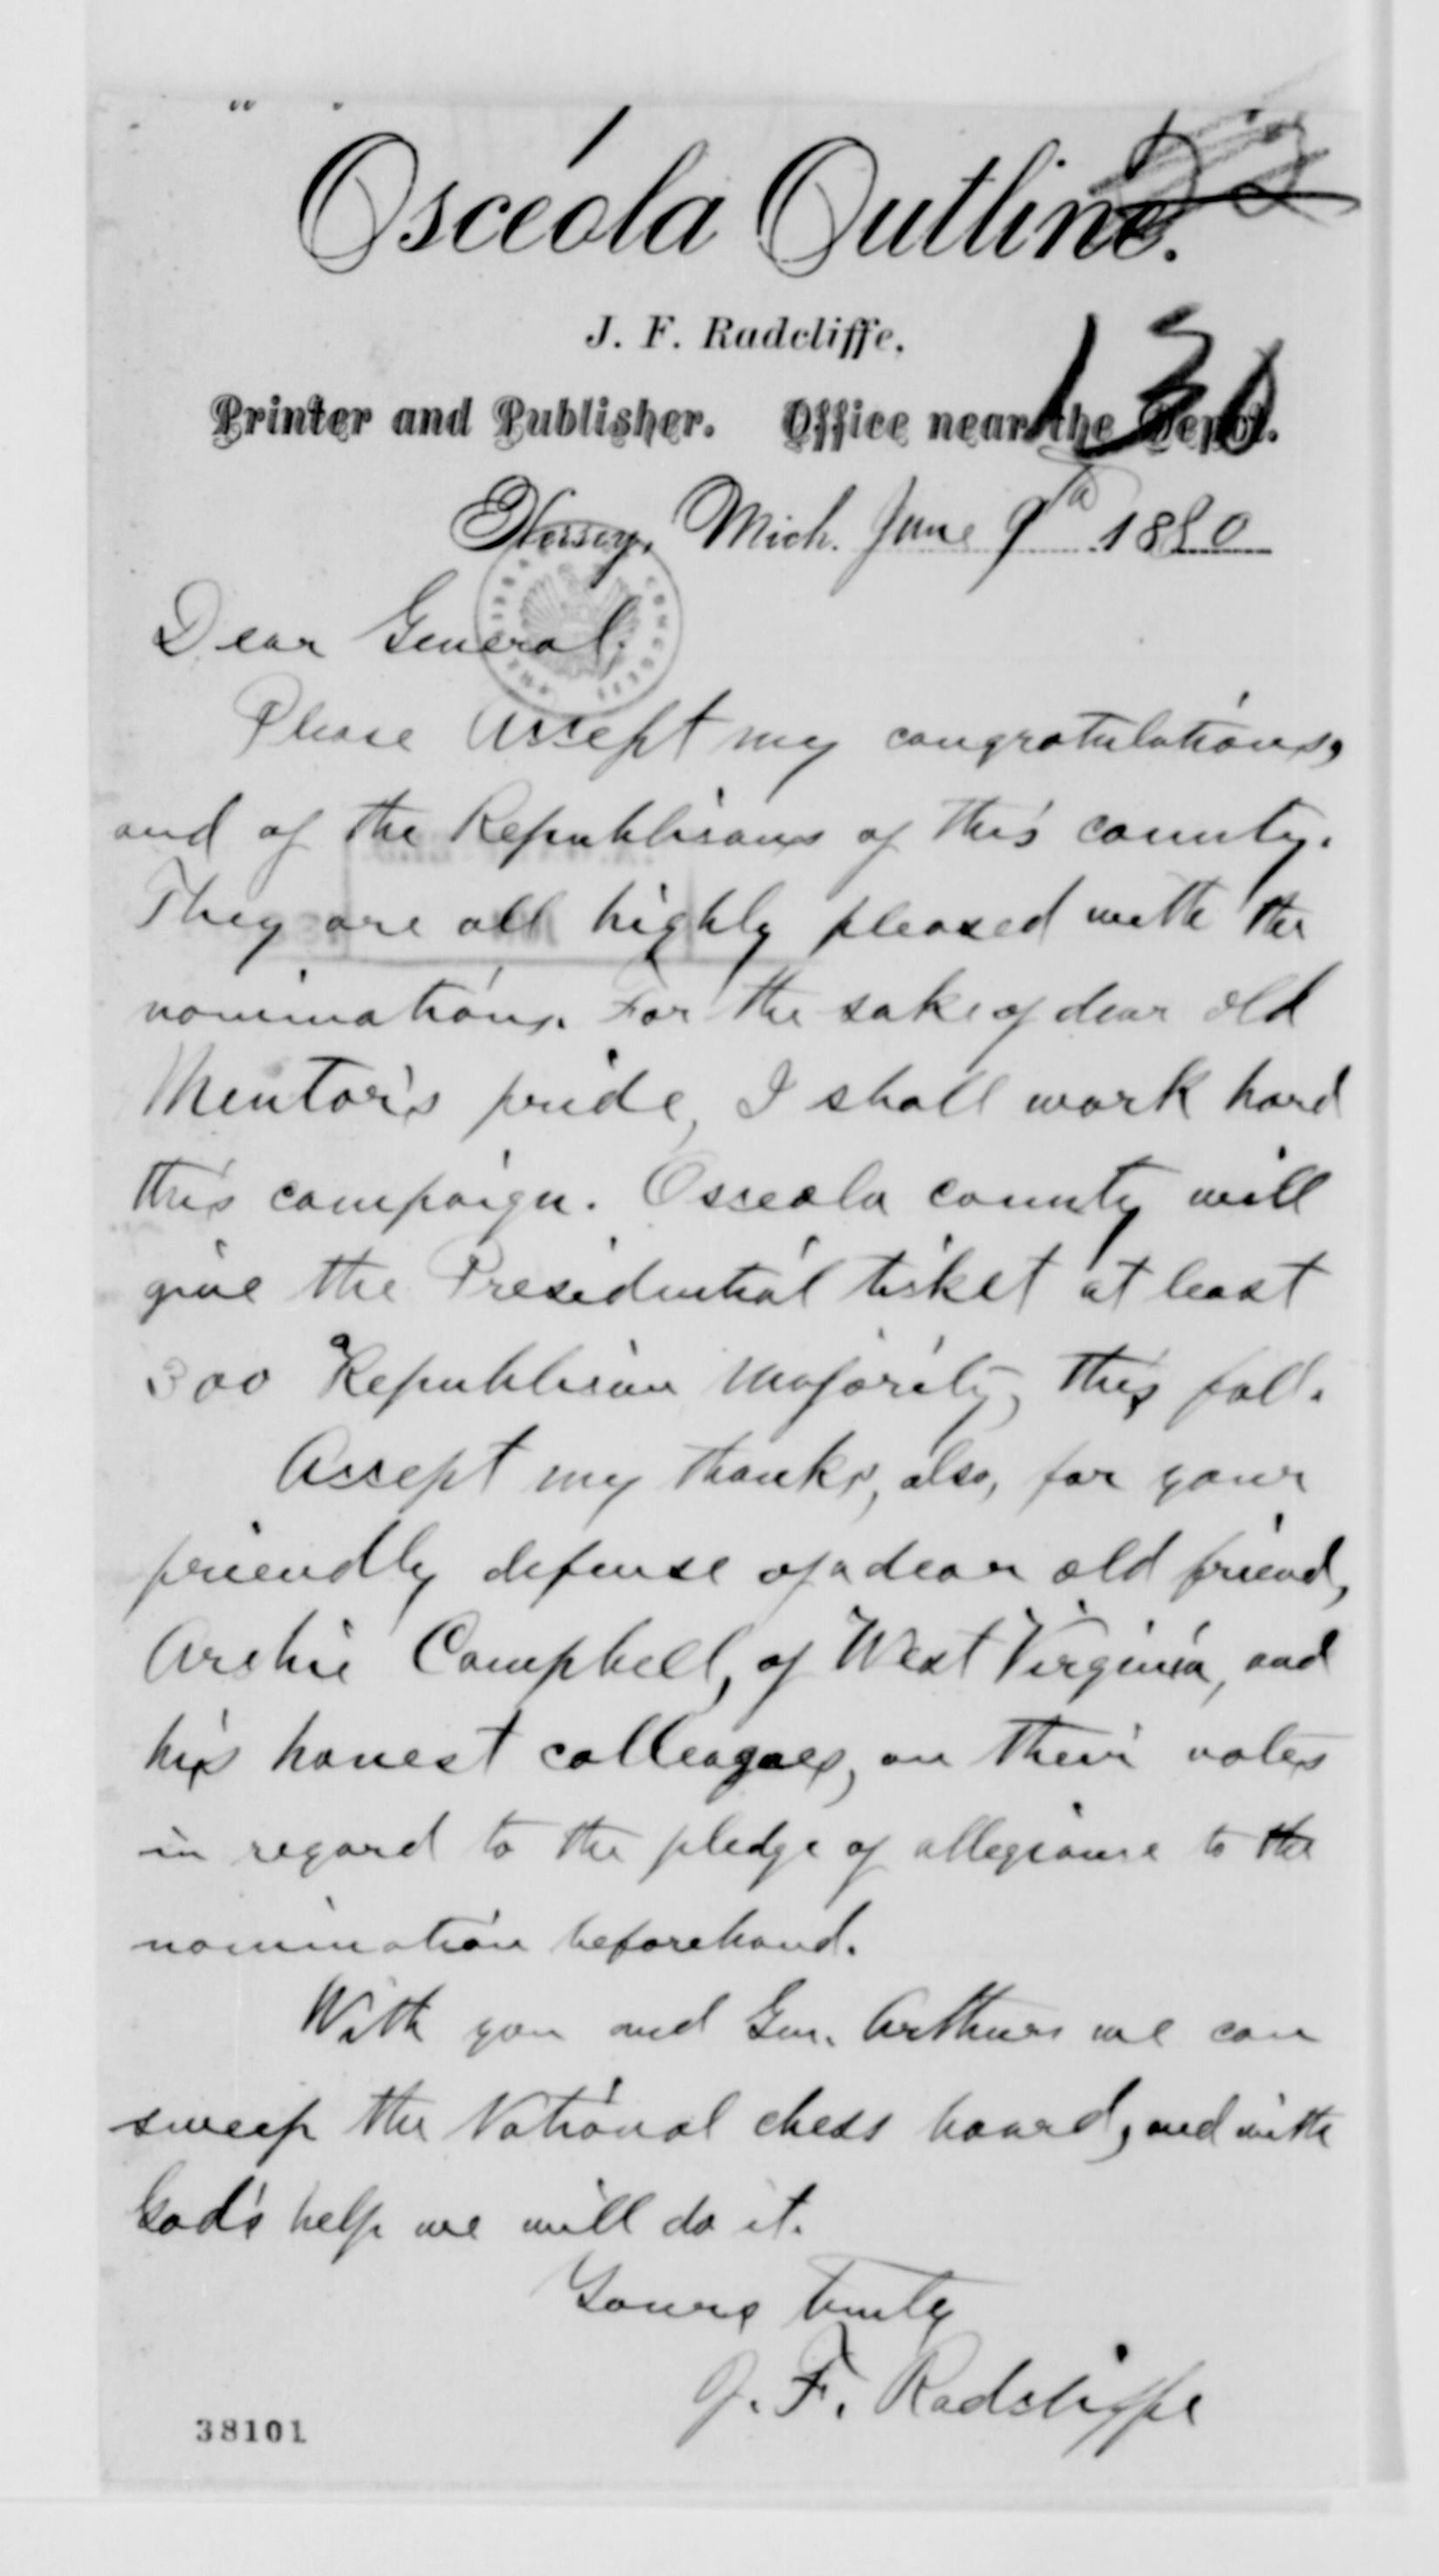 Osceola Outline.
J. F. Radcliffe.
Printer and Publisher. Office near the Depot.
130
Hersey, Mich. June 9th 1880
Dear General:
Please accept my congratulations,
and of the Republicans of this county.
They are all highly pleased with the
nominations. For the sake of dear old
Mentor's pride, I shall work hard
this campaign. Osceola county will
give the Presidential ticket at least
300 Republican majority, this fall.
Accept my thanks, also, for your
friendly defense of a dear old friend,
Archie Campbell, of West Virginia, and
his honest colleagues, on their votes
in regard to the pledge of allegiance to the
nomination beforehand.
With you and Gen. Arthur we can
sweep the National chess board, and with
God's help we will do it.
Yours truly
J. F. Radcliffe
38101